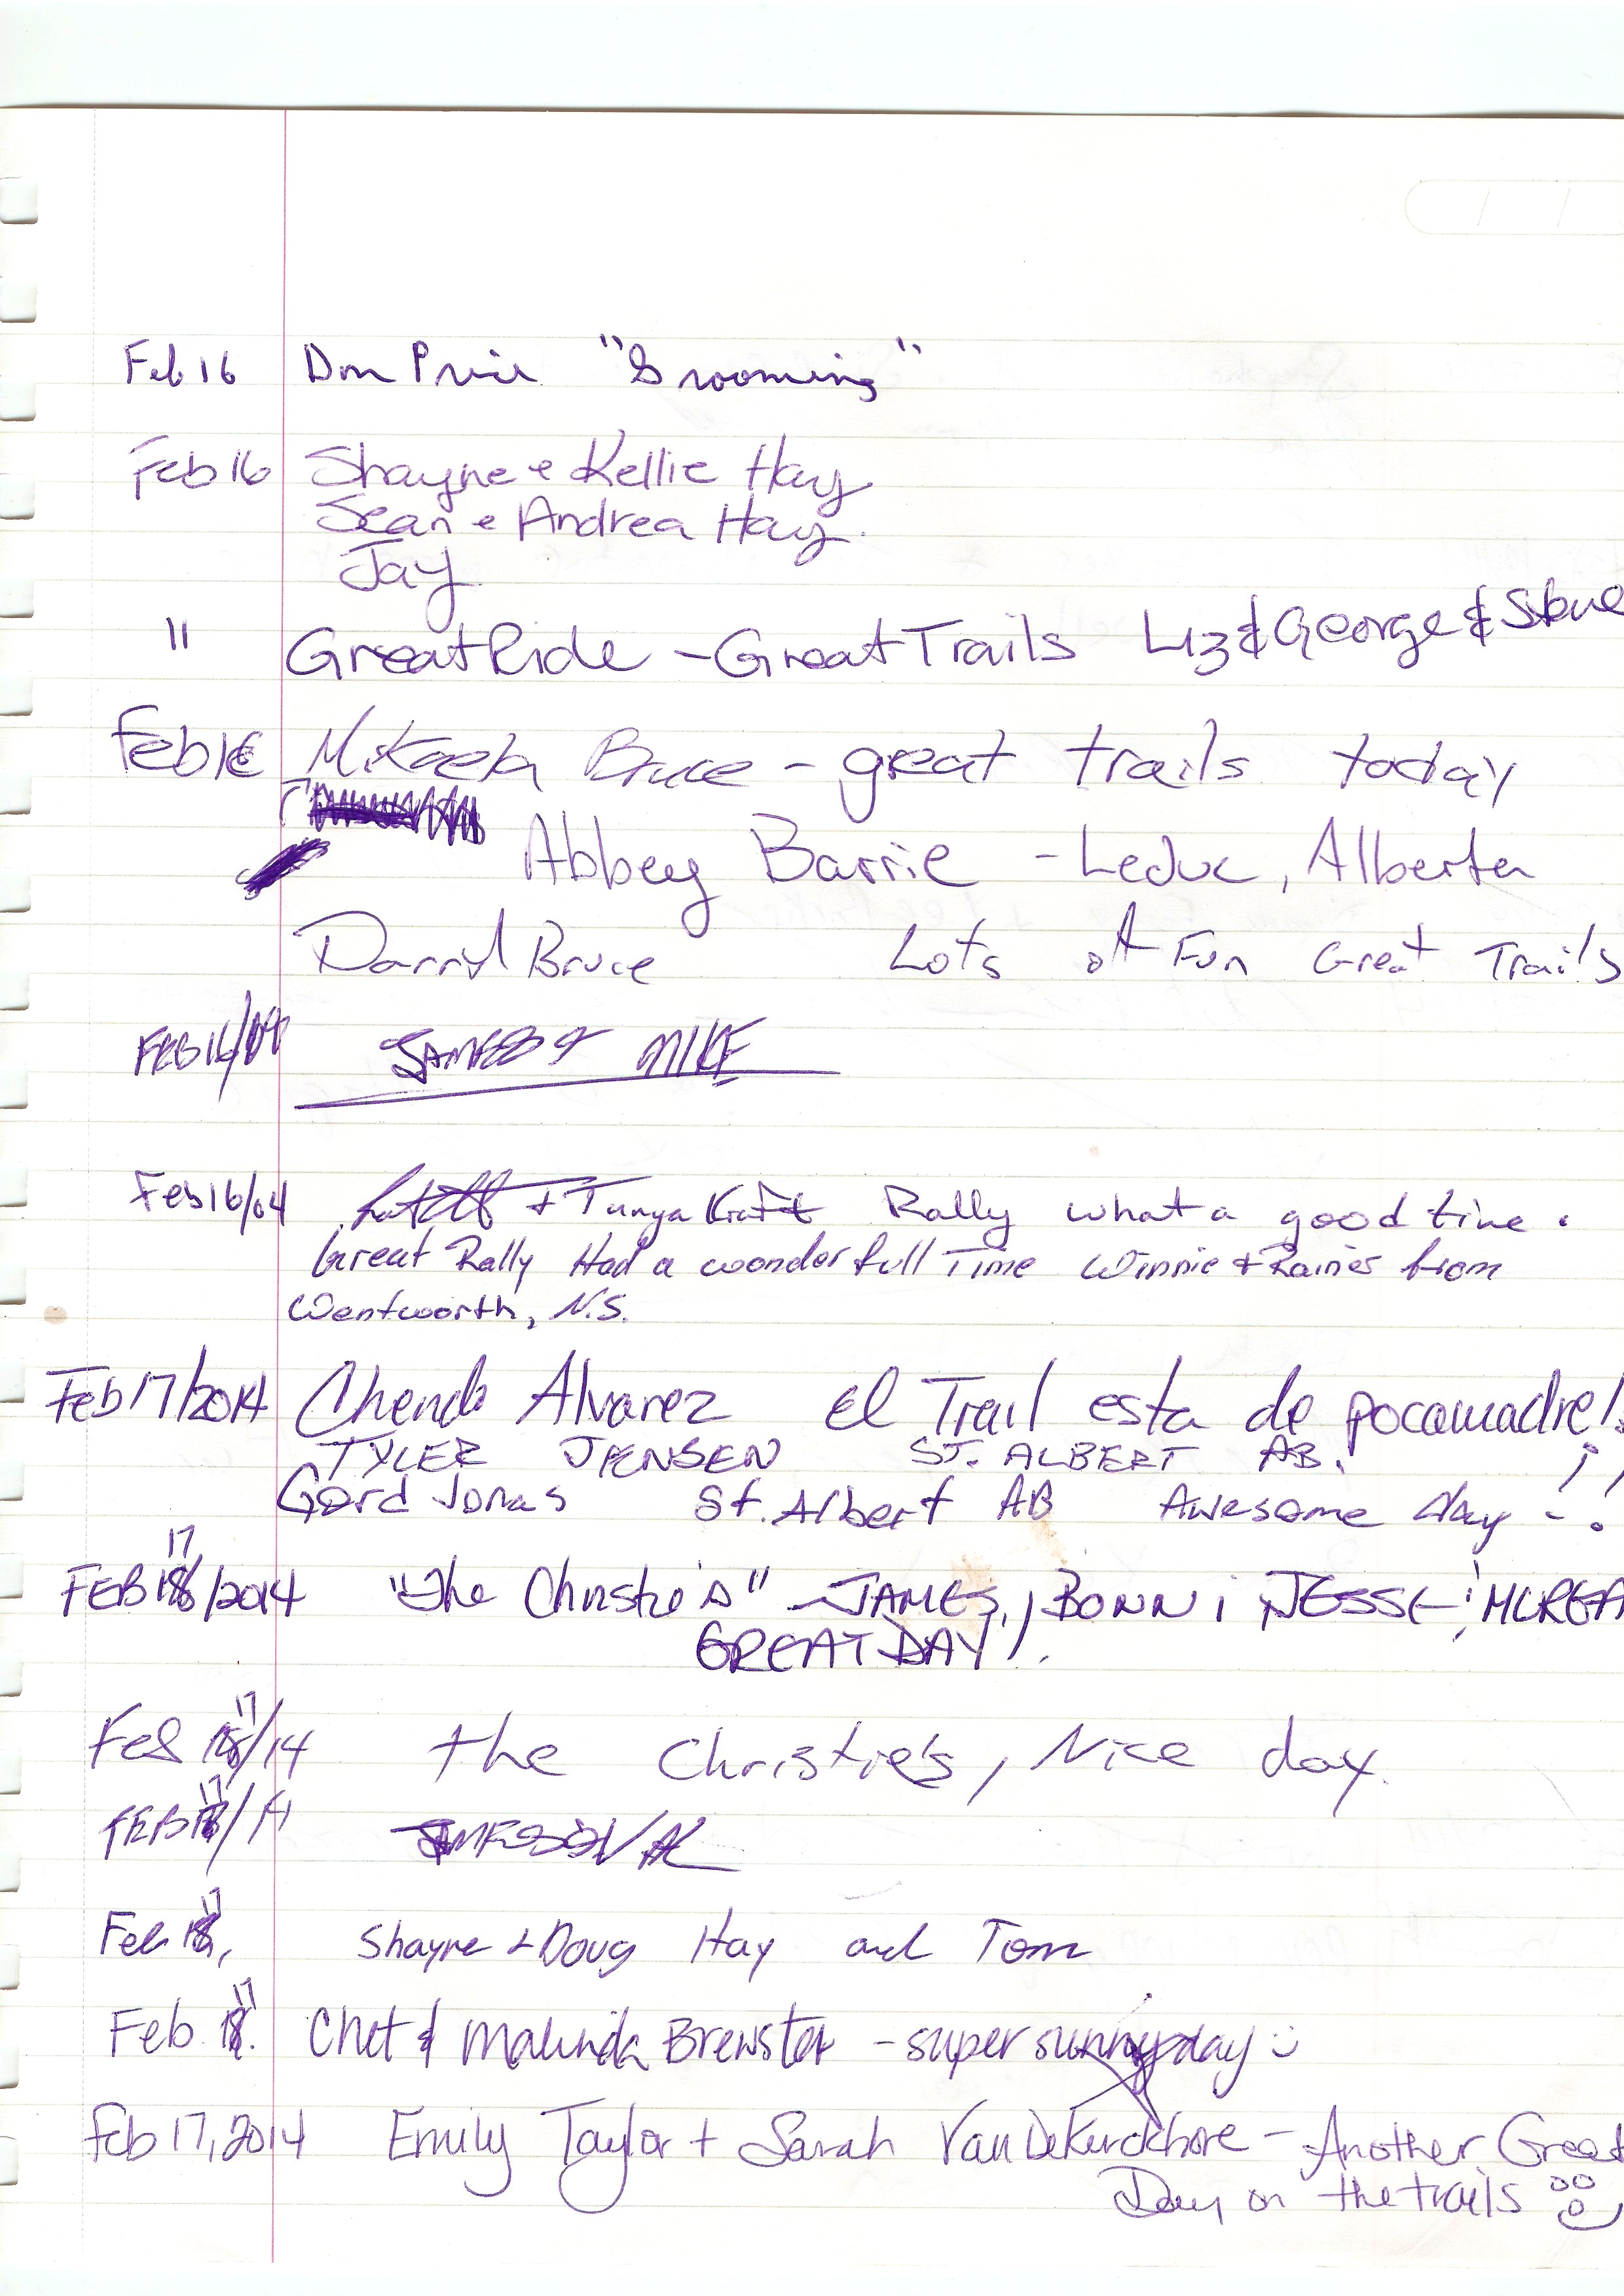 Feb 16 Don Price "Grooming"
Feb 16 Shayne & Kellie Hay
Sean & Andrea Hay.
Jay
" Great Ride - Great Trails Liz & George & Steve
Feb 16 Mikaela Bruce - great trails today
Abbey Barrie - Leduc, Alberta
Darryl Bruce Lots of Fun Great Trails
FEB 16/ JAMES & MIKE
Feb 16/04 + Tunya Kraft Rally what a good time.
Great Rally Had a wonderfull Time Winnie & Rainer from
Wentworth, N.S.
Feb 17/2014 Chendo Alvarez el Trail esta de pocamadre!
TYLER JENSEN ST. ALBERT AB. !!
Gord Jonas St. Albert AB Awesome day - .
17
FEB 18/2014 "The Christie's" - JAMES, BONNI JESSE !
GREAT DAY!.
17
Feb 18/14 the Christie's, Nice day.
17
FEB 18/14
17
Feb 18, Shayne & Doug Hay and Tom
17
Feb. 18. Chet & Malinda Brewster - super sunny day
Feb 17, 2014 Emily Taylor + Sarah - Another Great
Day on the trails